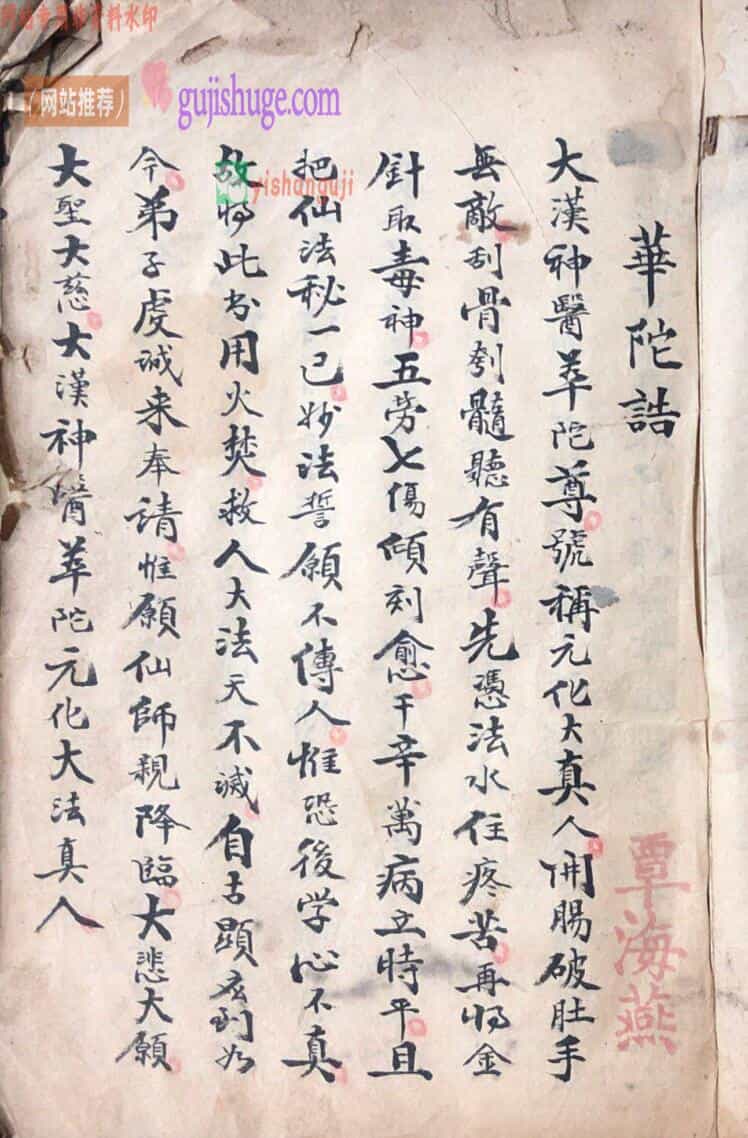 网站专用非资料水印
(网站推荐)
gujishuge.com
yishanguji
華陀誥
大漢神醫萃陀尊號稱元化大真人開腸破肚手
無敵刮骨刳髓聽有聲先憑法水住疼苦再將金
針取毒神五劳七傷傾刻愈千辛萬病立時平且
把仙法秘一已妙法誓願不傳人惟恐後学心不真
故將此书用火焚救人大法天不滅自古顯玄到如
今弟子虔誠来奉請惟願仙師親降臨大悲大願
大聖大慈大漢神醫萃陀元化大法真人
覃海燕